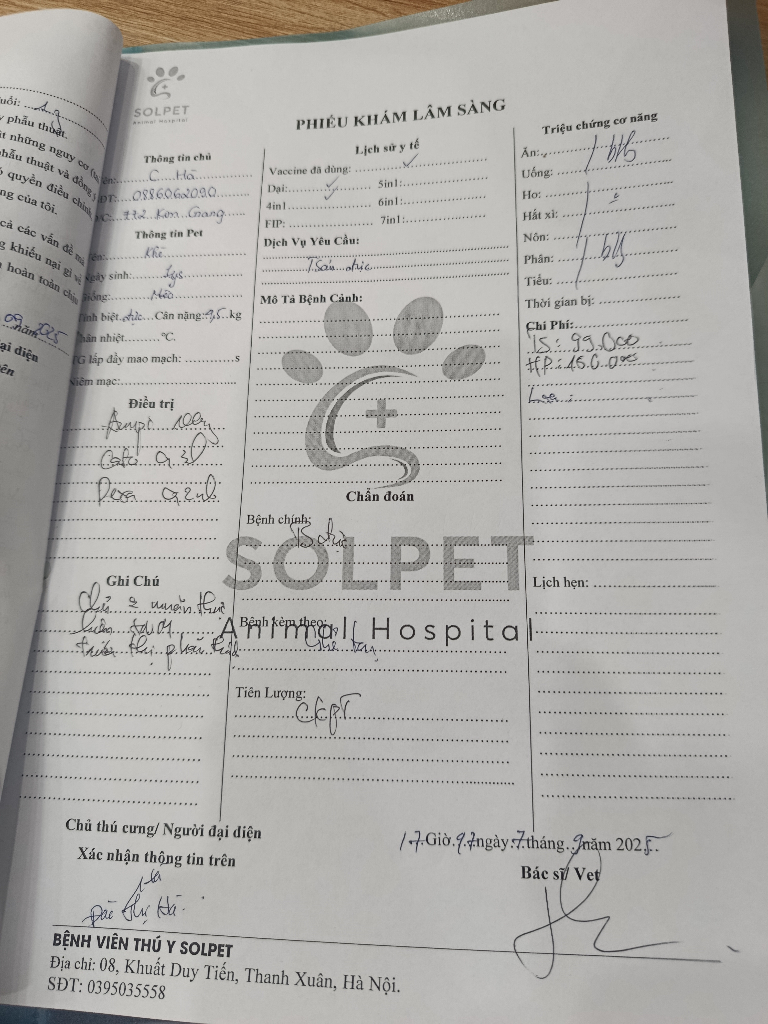 uổi:
phẫu thuật.
t những nguy cơ
phẫu thuật và đồng ý
quyền điều chỉnh
ng của tôi.
cả các vấn đề
g khiếu nại gì
hoàn toàn
09 năm 2025
ại diện
SOLPET
Animal Hospital
PHIẾU KHÁM LÂM SÀNG
Thông tin chủ
C Hà
ĐT: 0886062090
772 Kim Giang
Thông tin Pet
Khế
Ngày sinh:
Giống: Mèo
Tính biệt: đực Cân nặng: 9,5 kg
Thân nhiệt °C.
TG lấp đầy mao mạch: s
Niêm mạc:
Điều trị
Ampi 100mg
Dexa 0,2ml
Ghi Chú
Chủ muốn thực
phẫu thuật
Lịch sử y tế
Vaccine đã dùng:
Dại: 5in1:
4in1 6in1:
FIP: 7in1:
Dịch Vụ Yêu Cầu:
Tsản đực
Mô Tả Bệnh Cảnh:
Chẩn đoán
Bệnh chính:
Bệnh kèm theo:
Tiên Lượng:
SOLPET
Animal Hospital
Triệu chứng cơ năng
Ăn: bth
Uống:
Ho:
Hắt xì:
Nôn:
Phân: bth
Tiểu:
Thời gian bị:
Chi Phí:
TS: 99.000
HP: 150.000
Loa:
Lịch hẹn:
Chủ thú cưng/ Người đại diện
Xác nhận thông tin trên
Hà
Đào Thị Hà
17 Giờ 97 ngày 7 tháng 9 năm 2025
Bác sĩ/ Vet
BỆNH VIỆN THÚ Y SOLPET
Địa chỉ: 08, Khuất Duy Tiến, Thanh Xuân, Hà Nội.
SĐT: 0395035558